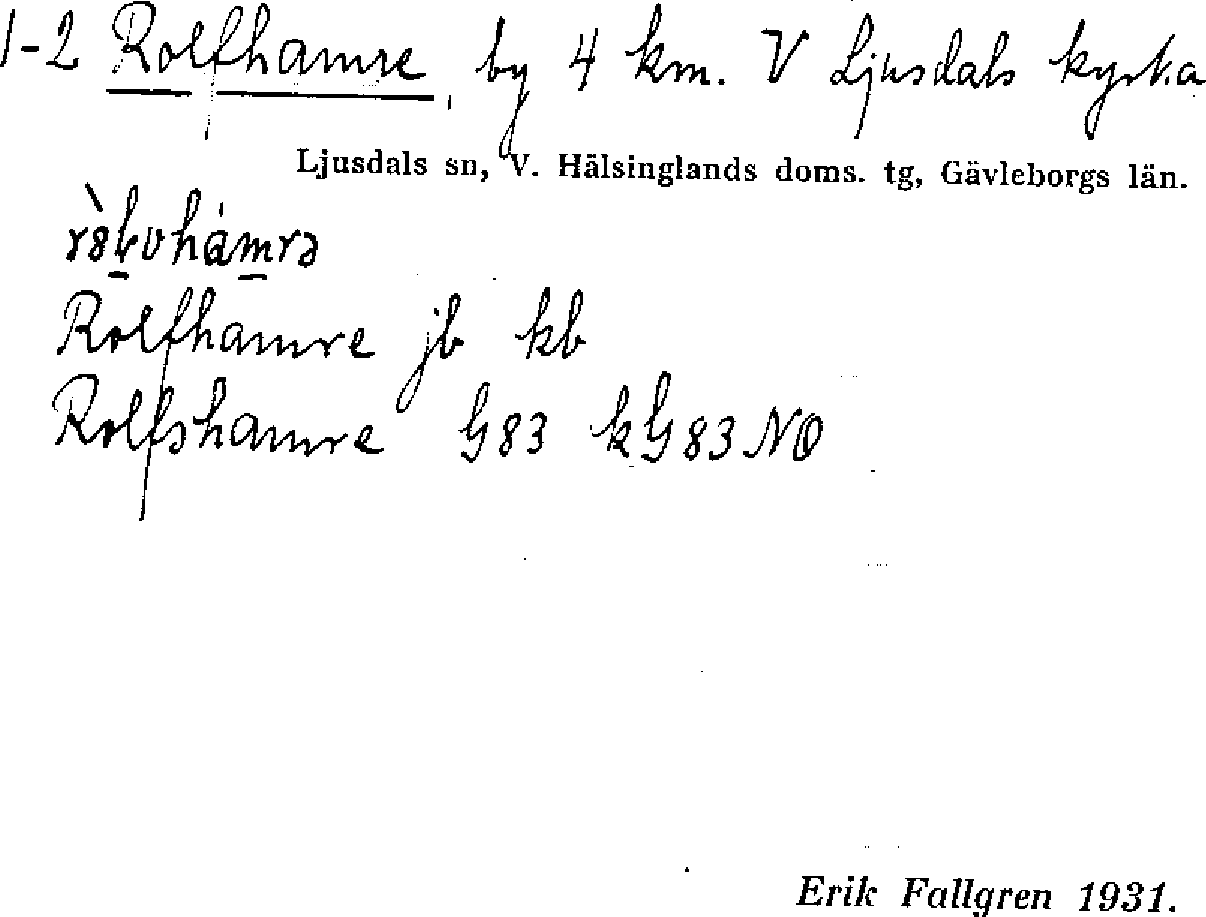 1-2 Rolfhamre, by 4 km. V Ljusdals kyrka
Ljusdals sn, V. Hälsinglands doms. tg, Gävleborgs län.
Rolfhamre jb kb
Rolfshamre G83 kG83NO
Erik Fallgren 1931.